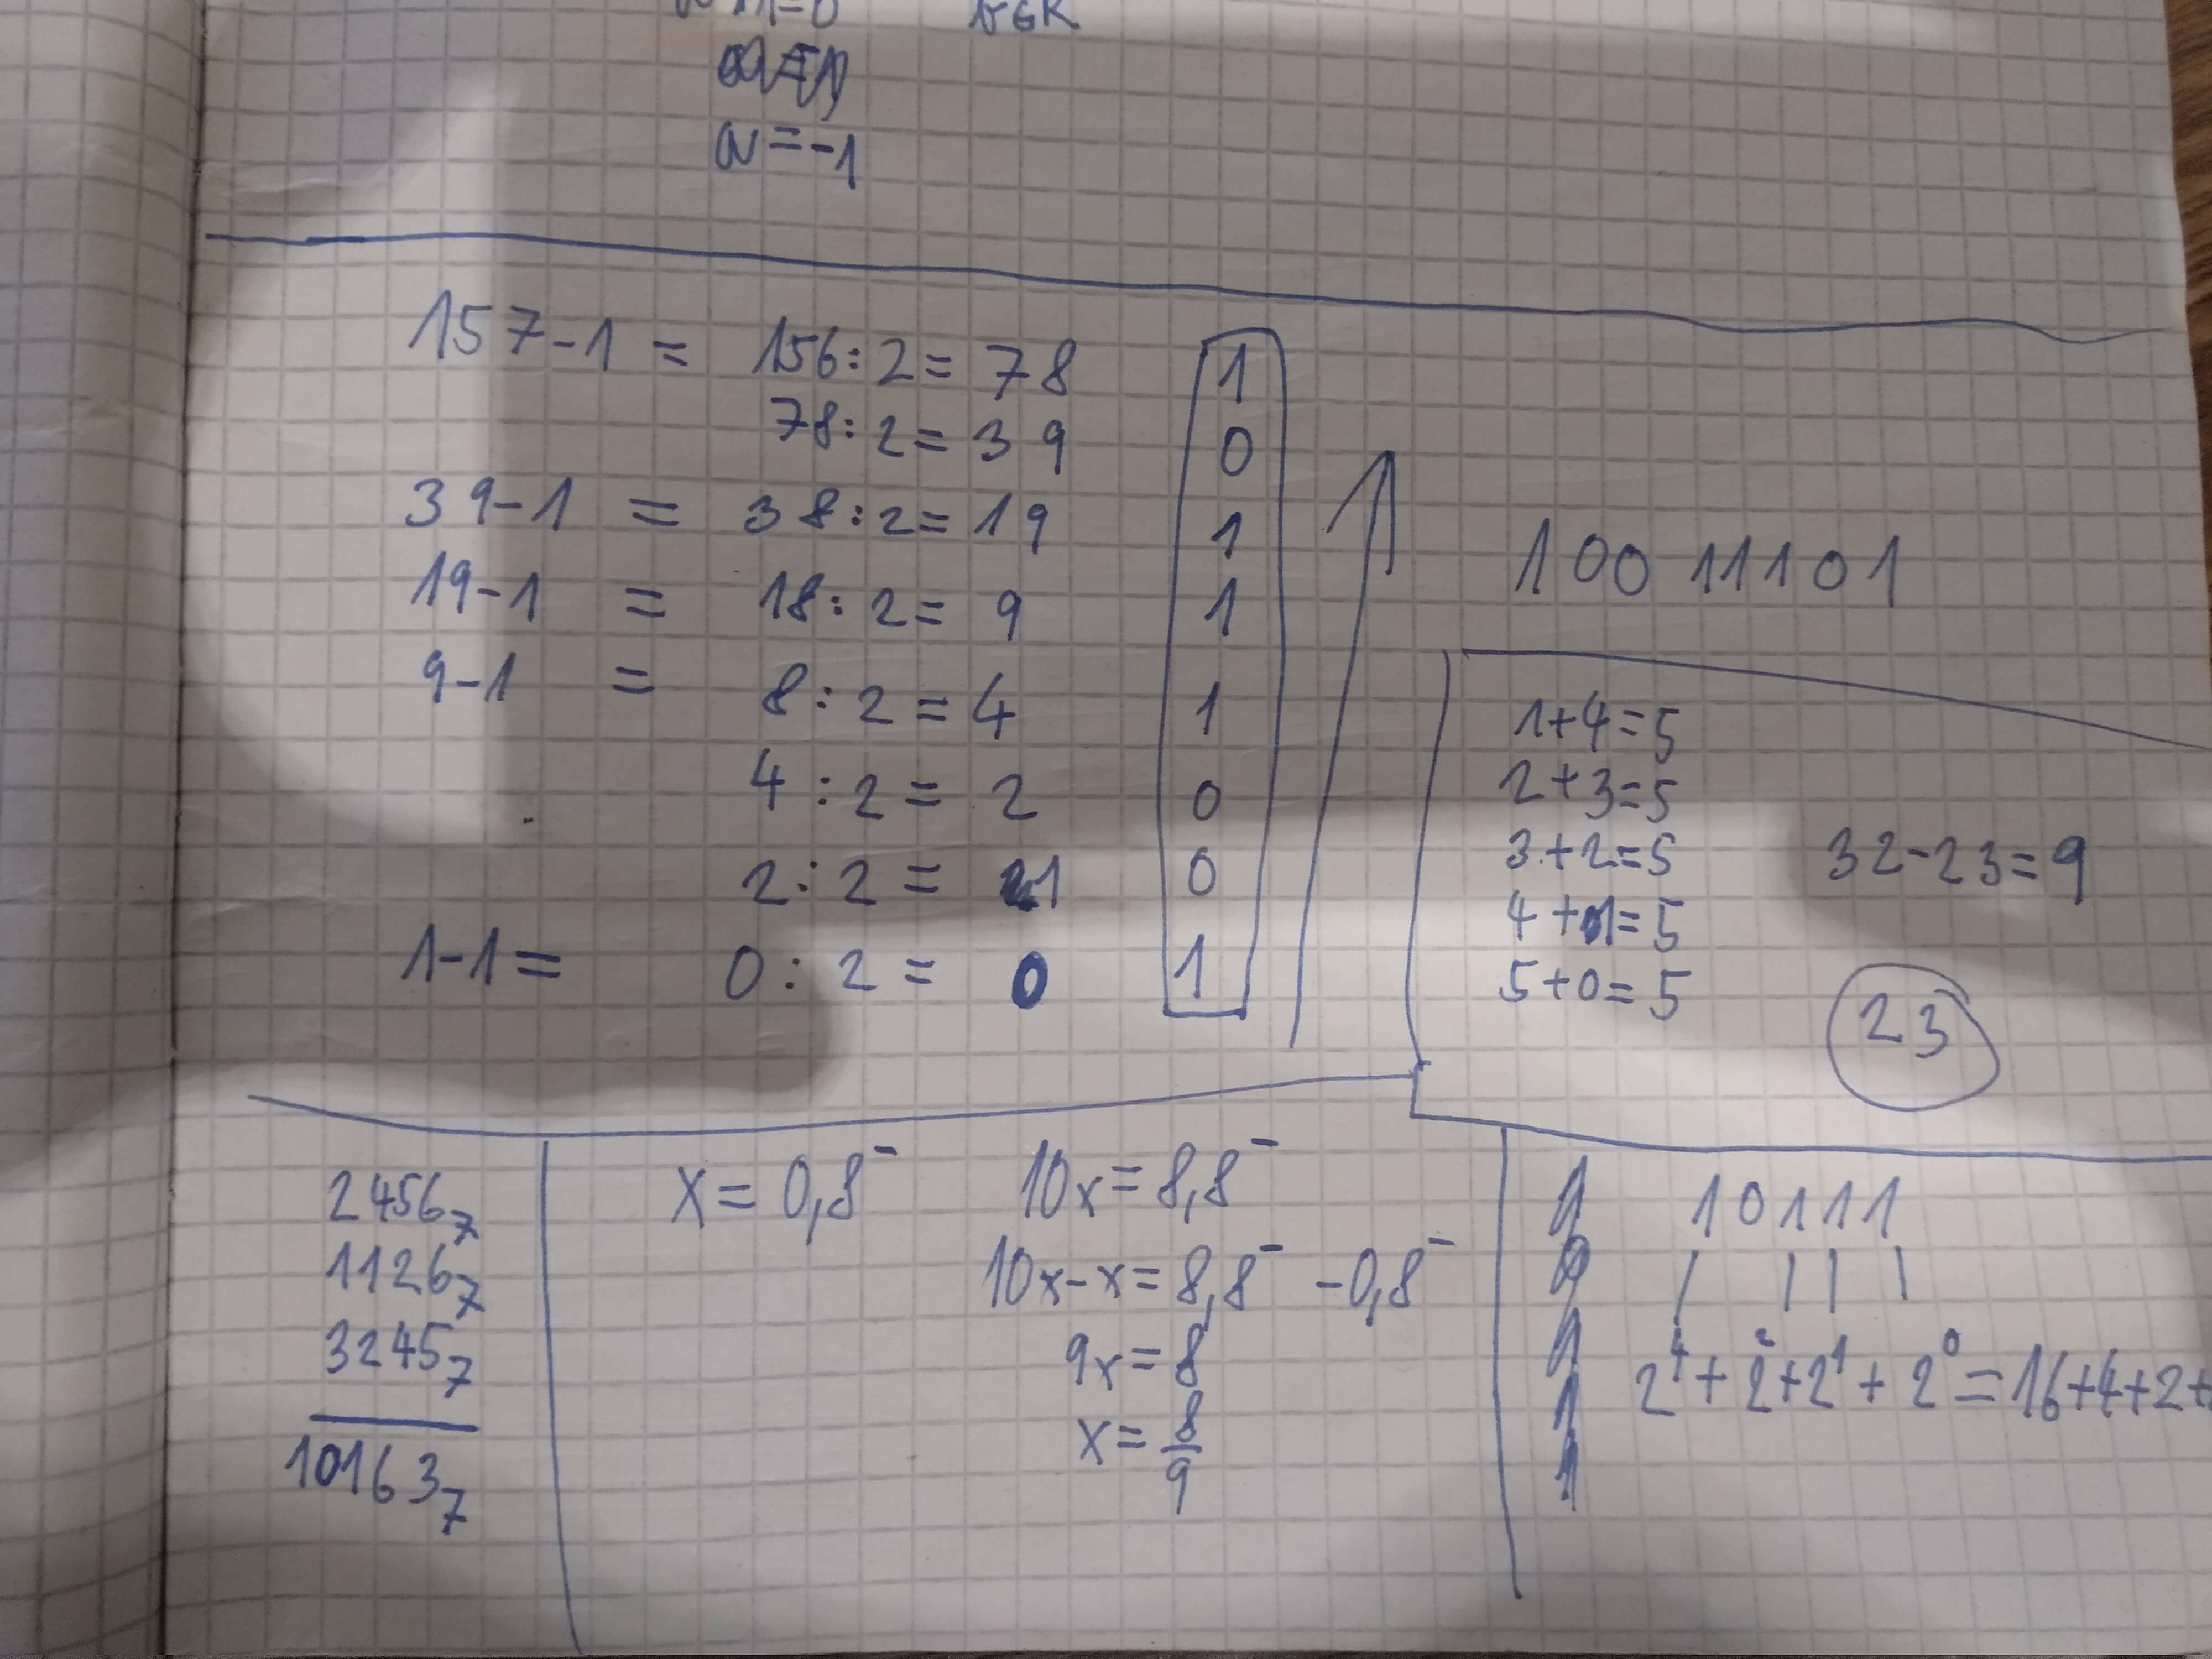 a = -1
157-1 = 156:2 = 78 1
78:2 = 39 0
39-1 = 38:2 = 19 1
19-1 = 18:2 = 9 1
9-1 = 8:2 = 4 1
4:2 = 2 0
2:2 = 1 0
1-1 = 0:2 = 0 1
10011101
1+4=5
2+3=5
3+2=5
4+1=5
5+0=5
32-23=9
23
2456₇
1126₇
3245₇
10163₇
x = 0,8⁻
10x = 8,8⁻
10x-x = 8,8⁻ -0,8⁻
9x = 8
x = 8/9
1
0
1
1
1
10111
2⁴ + 2² + 2¹ + 2⁰ = 16+4+2+